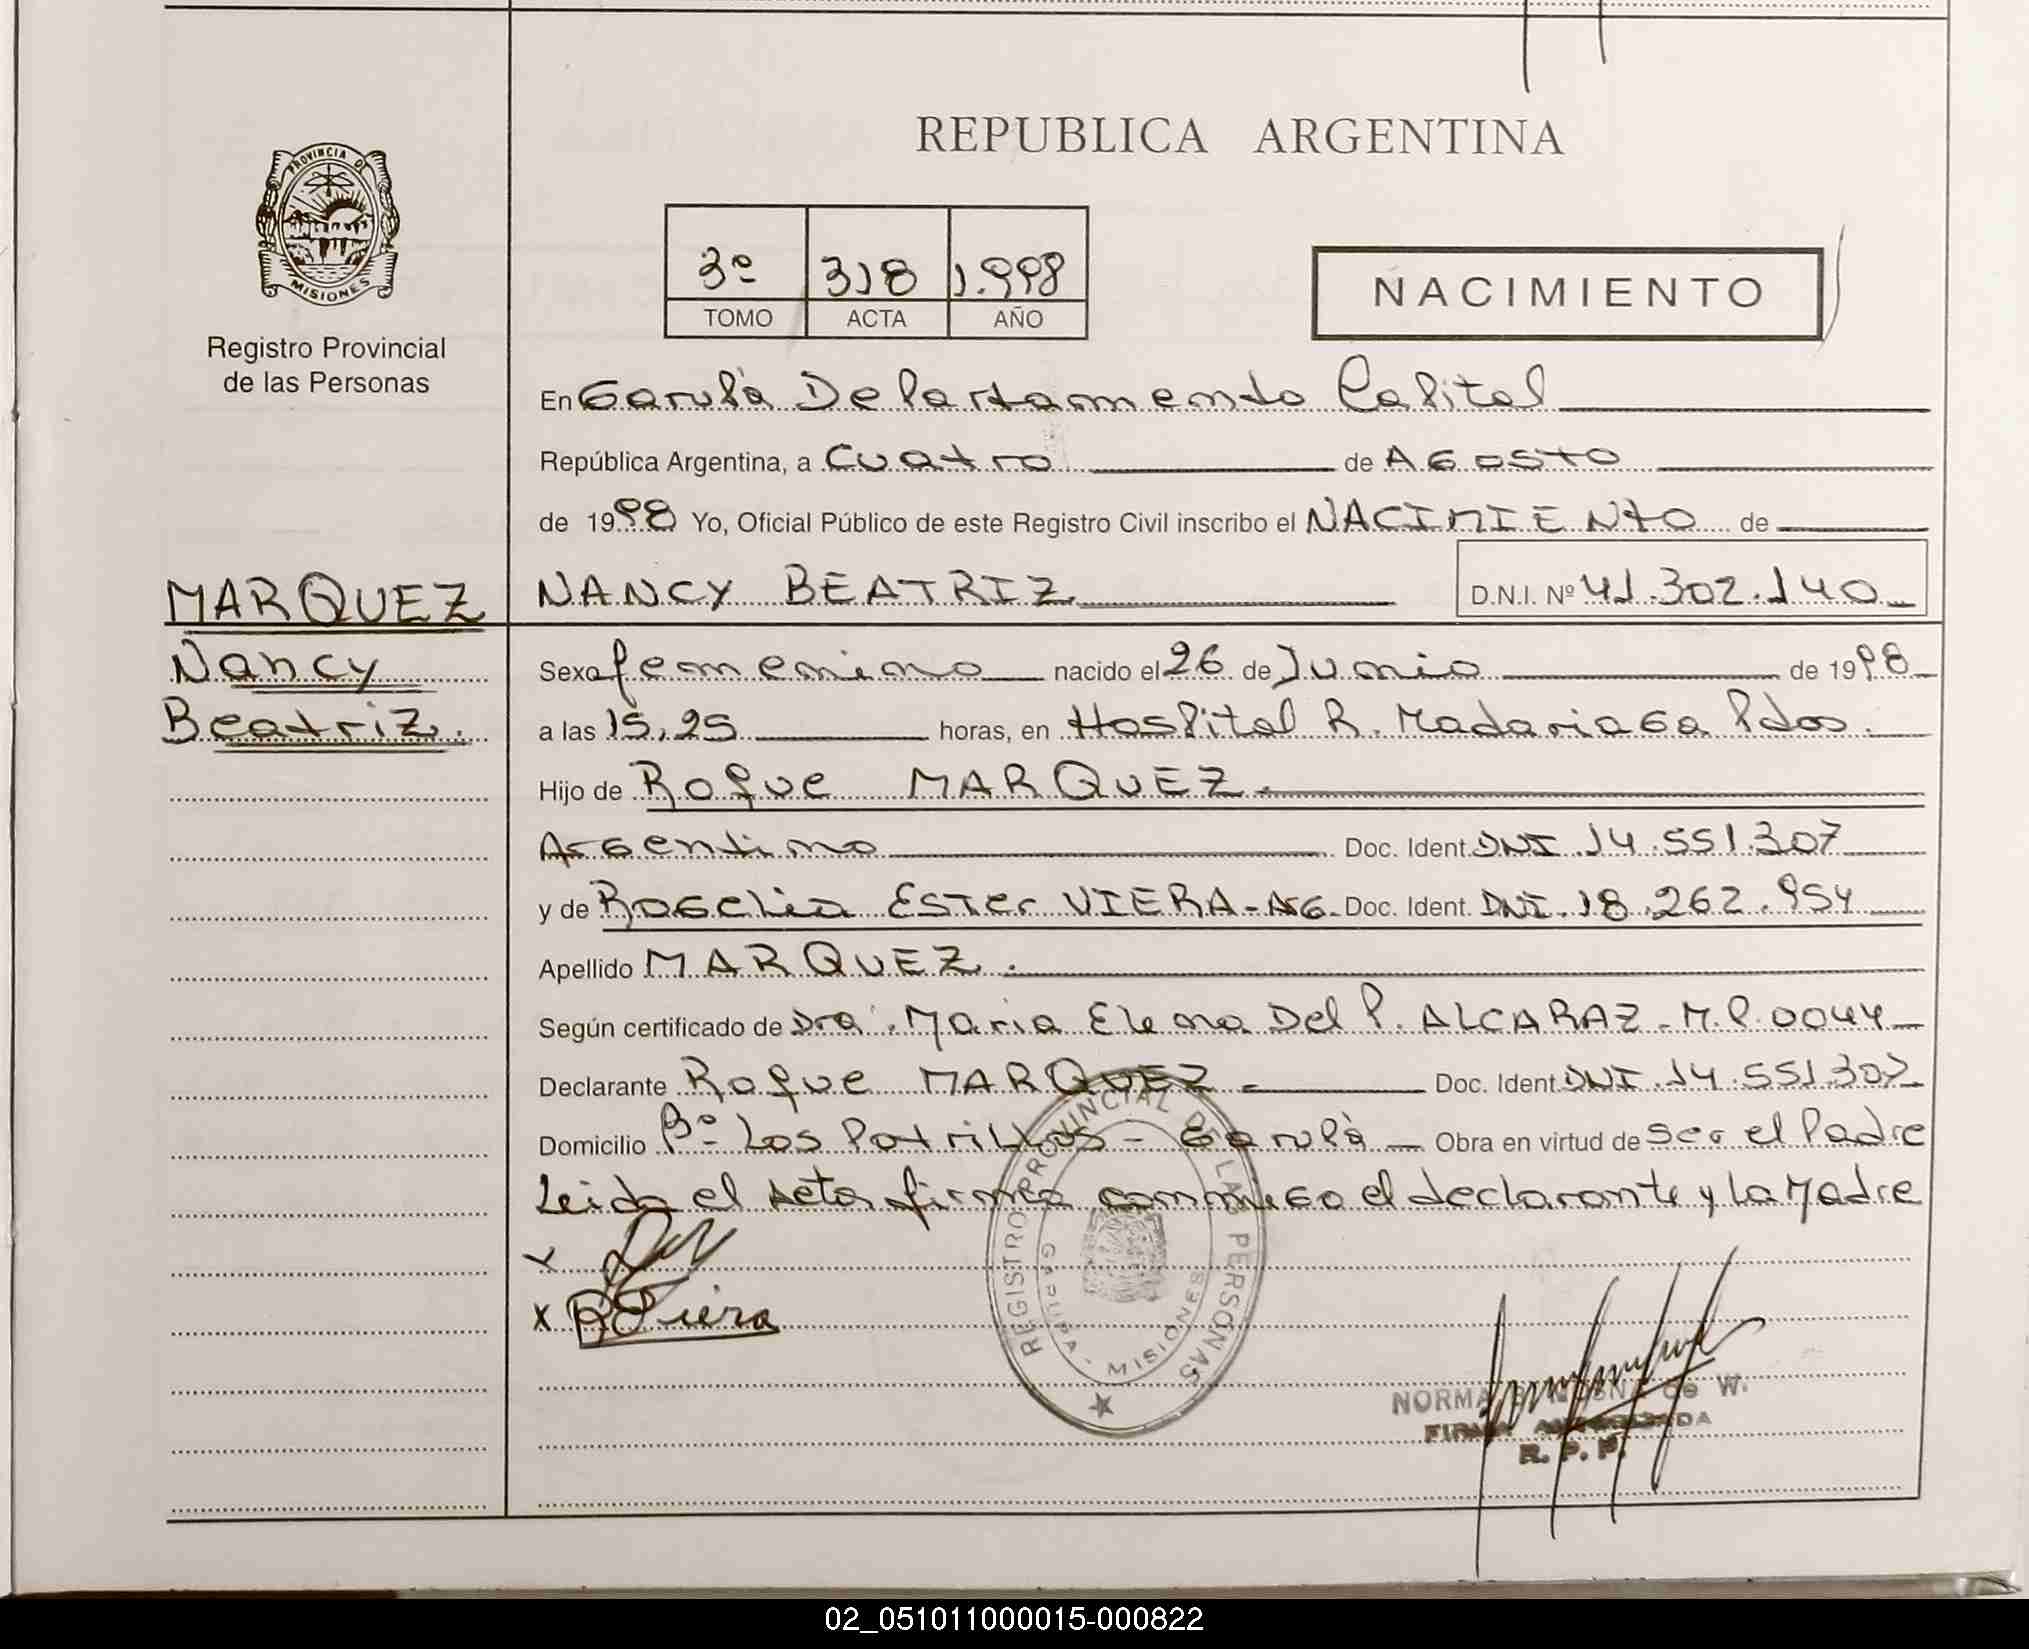 REPUBLICA ARGENTINA
PROVINCIA DE
MISIONES
Registro Provincial
de las Personas
3º 318 1.998
TOMO ACTA AÑO
NACIMIENTO
En Garupá Departamento Capital
República Argentina, a cuatro de Agosto
de 1998 Yo, Oficial Público de este Registro Civil inscribo el NACIMIENTO de
MARQUEZ
Nancy
Beatriz.
NANCY BEATRIZ D.N.I. Nº 41.302.140
Sexo femenino nacido el 26 de Junio de 1998
a las 15,25 horas, en Hospital R. Madariaga Pdas.
Hijo de Roque MARQUEZ.
Argentino Doc. Ident. DNI.14.551.307
y de Rogelia Ester VIERA-Arg. Doc. Ident. DNI.18.262.954
Apellido MARQUEZ.
Según certificado de Dra. Maria Elena Del P. ALCARAZ - M.P.0044
Declarante Roque MARQUEZ - Doc. Ident. DNI.14.551.307
Domicilio Bº Los Potrillos - Garupá - Obra en virtud de Ser el Padre
Leida el Acta, firma conmigo el declarante y la Madre
X
X RViera
REGISTRO PROVINCIAL DE LAS PERSONAS
GARUPA - MISIONES
NORMA de W.
FIRMA AUTORIZADA
R. P. P.
02_051011000015-000822